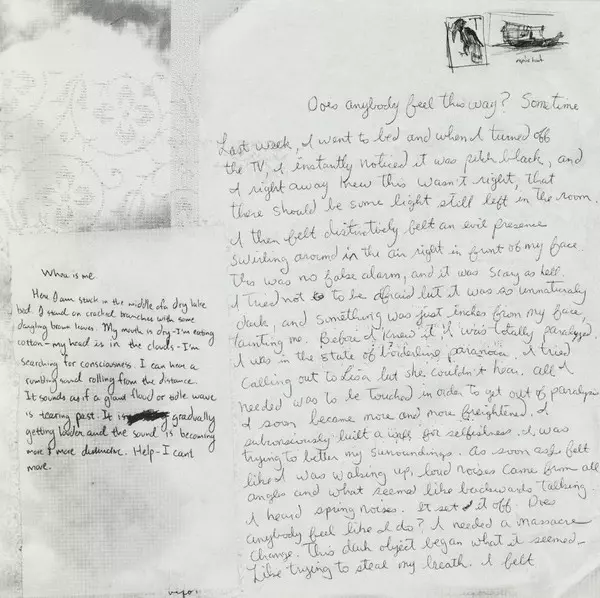 Does anybody feel this way? Sometime
Last week, I went to bed and when I turned off
the TV, I instantly noticed it was pitch black, and
I right away knew this wasn't right, that
there should be some light still left in the room.
I then felt distinctively felt an evil presence
swirling around in the air right in front of my face.
This was no false alarm, and it was scary as hell.
I tried not to be afraid but it was so unnaturaly
dark, and something was just inches from my face,
taunting me. Before I knew it, I was totally paralyzed.
I was in the state of borderline paranoia. I tried
calling out to Lisa but she couldn't hear. All I
needed was to be touched in order to get out of paralysis
I soon became more and more freightened. I
subconsciously built a for selfishness. I was
trying to better my surroundings. As soon as I felt
like I was waking up, loud noises came from all
angles and what seemed like backwards talking.
I heard spring noises. It set it off. Does
anybody feel like I do? I needed a massacre
change. This dark object began what it seemed
like trying to steal my breath. I felt
Whoa is me
Here I am stuck in the middle of a dry lake
bed. I stand on cracked branches with some
dangling brown leaves. My mouth is dry-I'm eating
cotton-my head is in the clouds-I'm
searching for consciousness. I can hear a
rumbling sound rolling from the distance.
It sounds as if a giant flood or tidle wave
is tearing past. It is gradually
getting louder and the sound is becoming
more & more distinctive. Help-I can't
move.